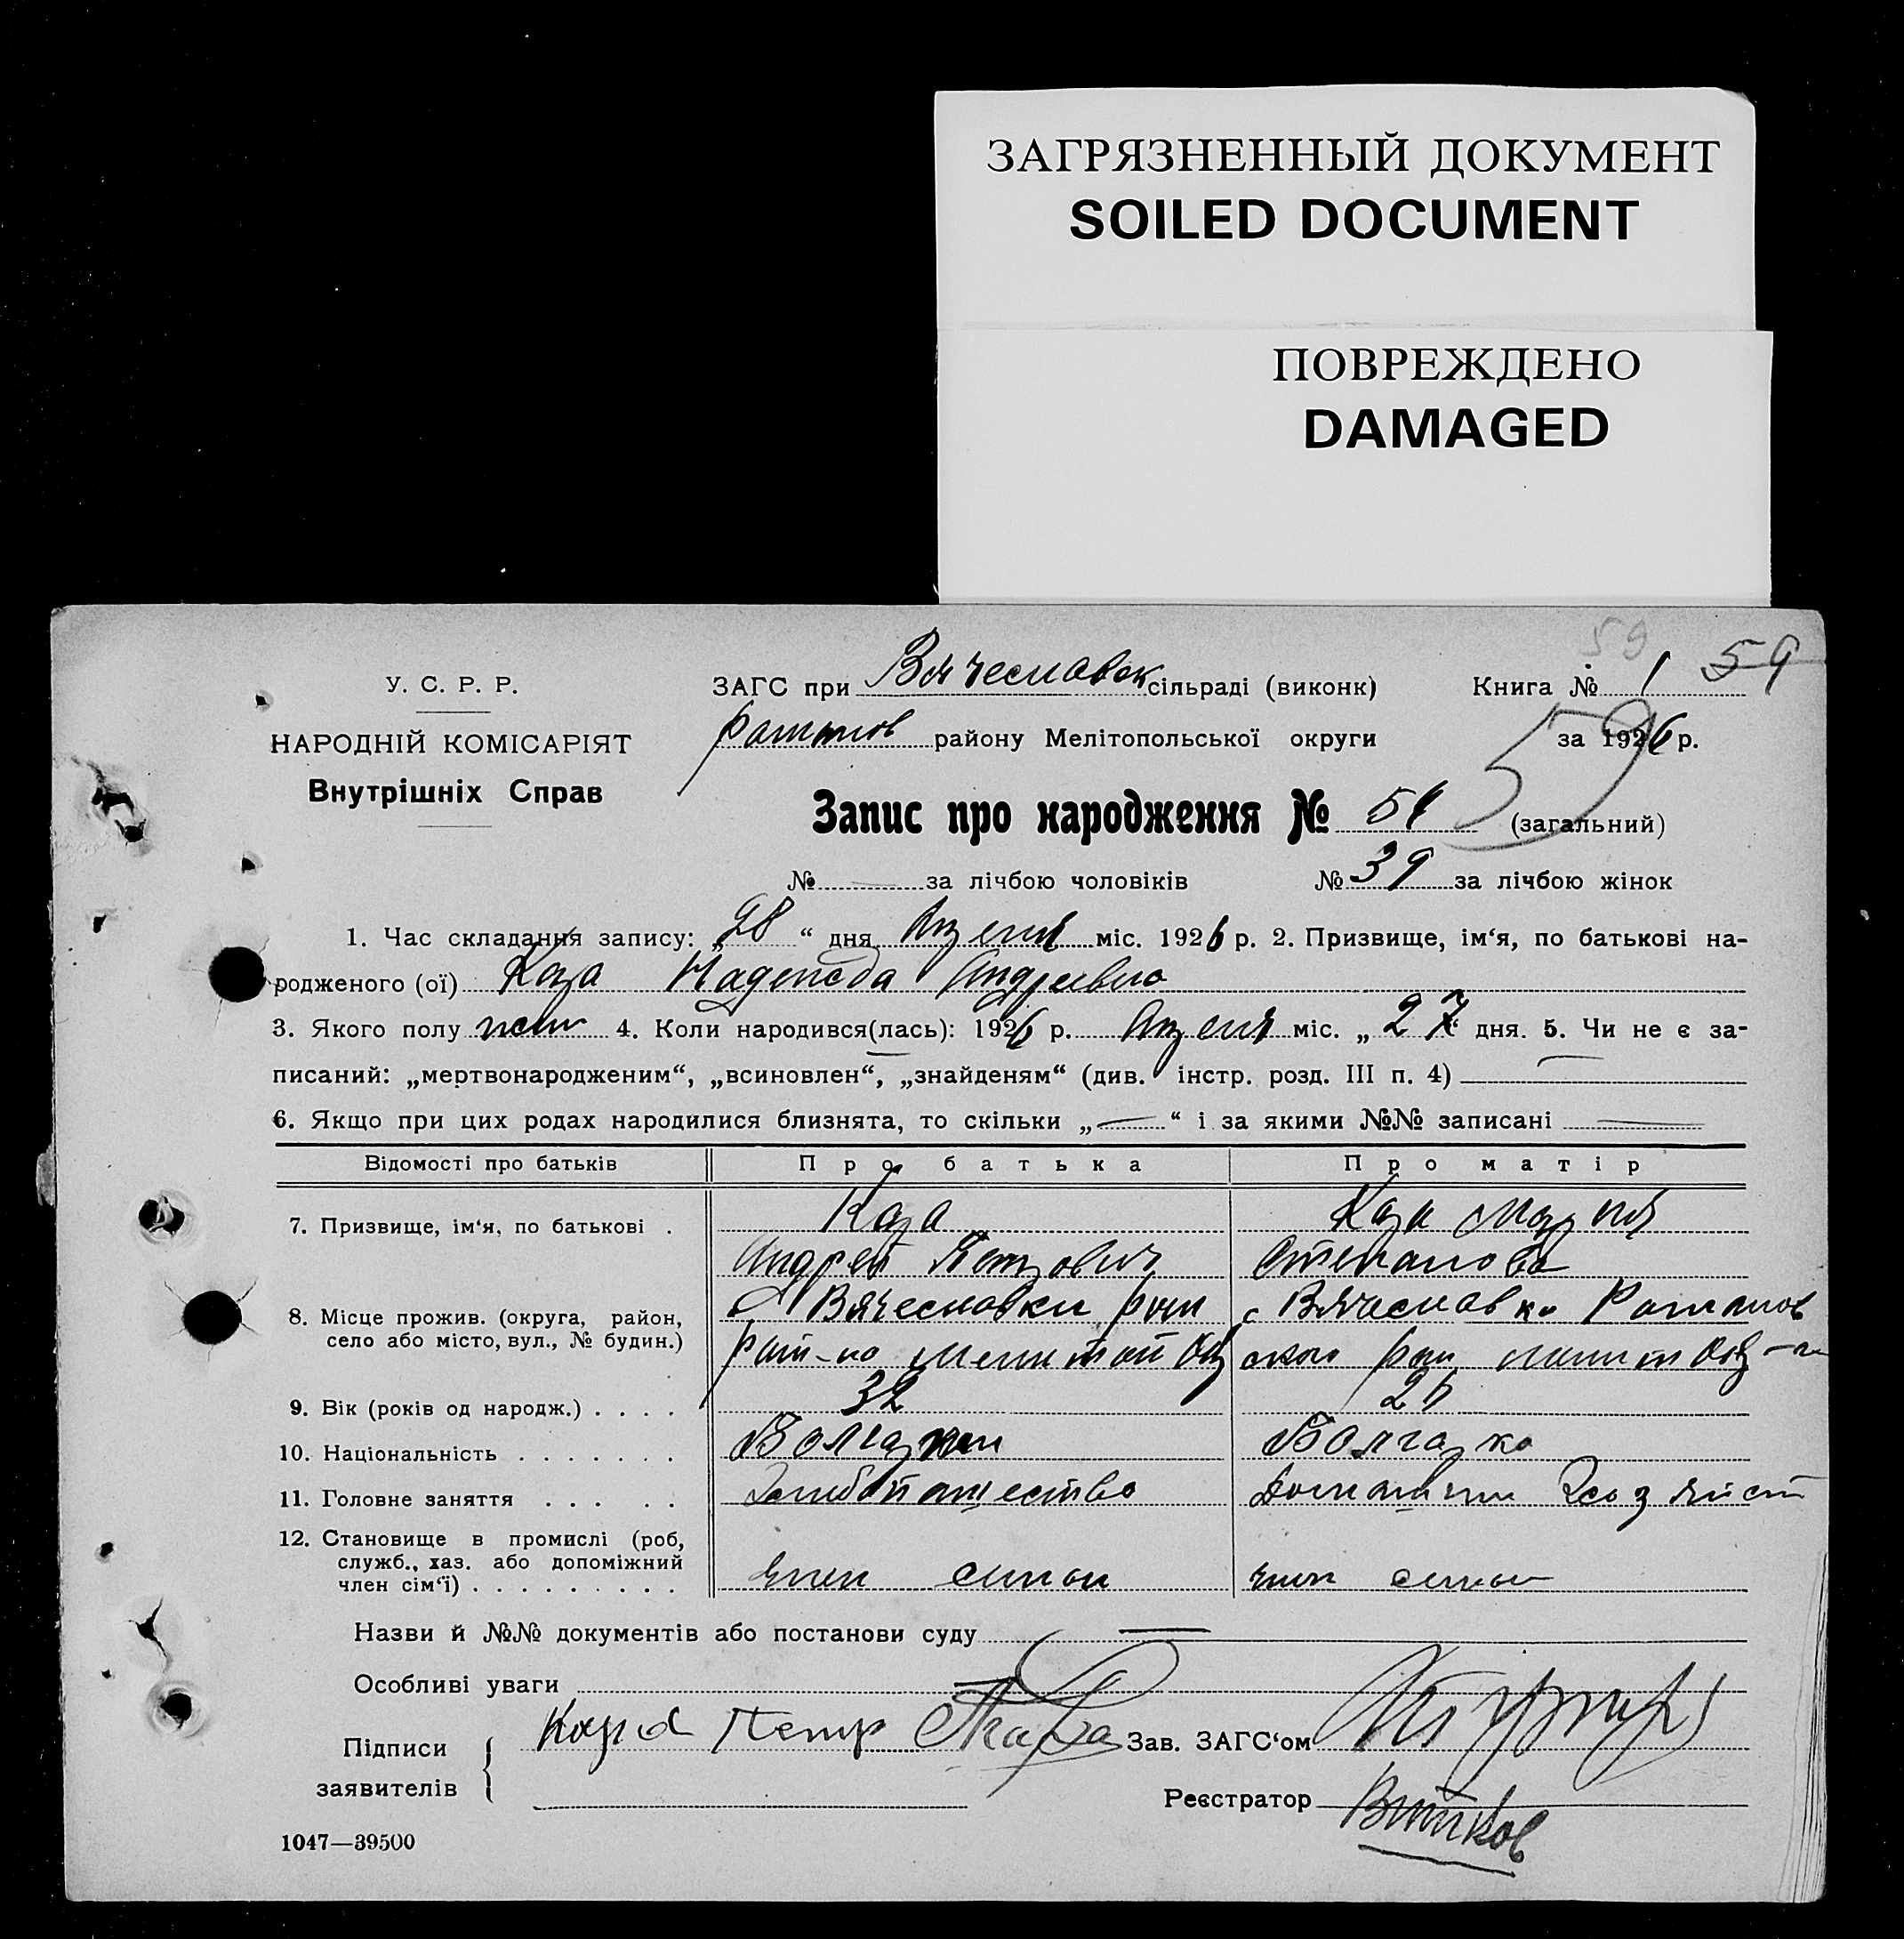 ЗАГРЯЗНЕННЫЙ ДОКУМЕНТ
SOILED DOCUMENT
ПОВРЕЖДЕНО
DAMAGED
59
У. С. Р. Р.
ЗАГС при Вячеславск сільраді (виконк) Книга № 1 59
НАРОДНІЙ КОМІСАРІЯТ
району Мелітопольської округи за 1926 р.
59
Внутрішніх Справ
Запис про народження № (загальний)
№ — за лічбою чоловіків № 39 за лічбою жінок
1. Час складання запису: „28“ дня Апреля міс. 1926 р. 2. Призвище, ім‘я, по батькові на-
родженого (ої) Кара Надежда Андреевна
3. Якого полу жен 4. Коли народився(лась): 1926 р. Апреля міс. „27 дня. 5. Чи не є за-
писаний: „мертвонародженим“, „всиновлен“, „знайденям“ (див. інстр. розд. III п. 4) —
6. Якщо при цих родах народилися близнята, то скільки „—“ і за якими №№ записані —
Відомості про батьків Про батька Про матір
7. Призвище, ім‘я, по батькові . Кара Кара Мария
Андрей Петрович Степанова
8. Місце прожив. (округа, район, с Вячеславки рай с Вячеславка Романов
село або місто, вул., № будин.) Мелитоп окр ского рай мелит окр
9. Вік (років од народж.) . . . . 32 26
10. Національність . . . . . . . Болгарин Болгарка
11. Головне заняття . . . . . Хлебопашество Домашн Хозяйст
12. Становище в промислі (роб,
служб., хаз. або допоміжний
член сім‘ї) . . . . . . . . . член семьи член семьи
Назви й №№ документів або постанови суду —
Особливі уваги
Підписи Кара Петр Кара Зав. ЗАГС‘ом
заявителів Реєстратор
1047—39500